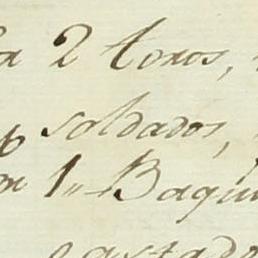 2 toros,
soldados,
1. Baqui
gastado